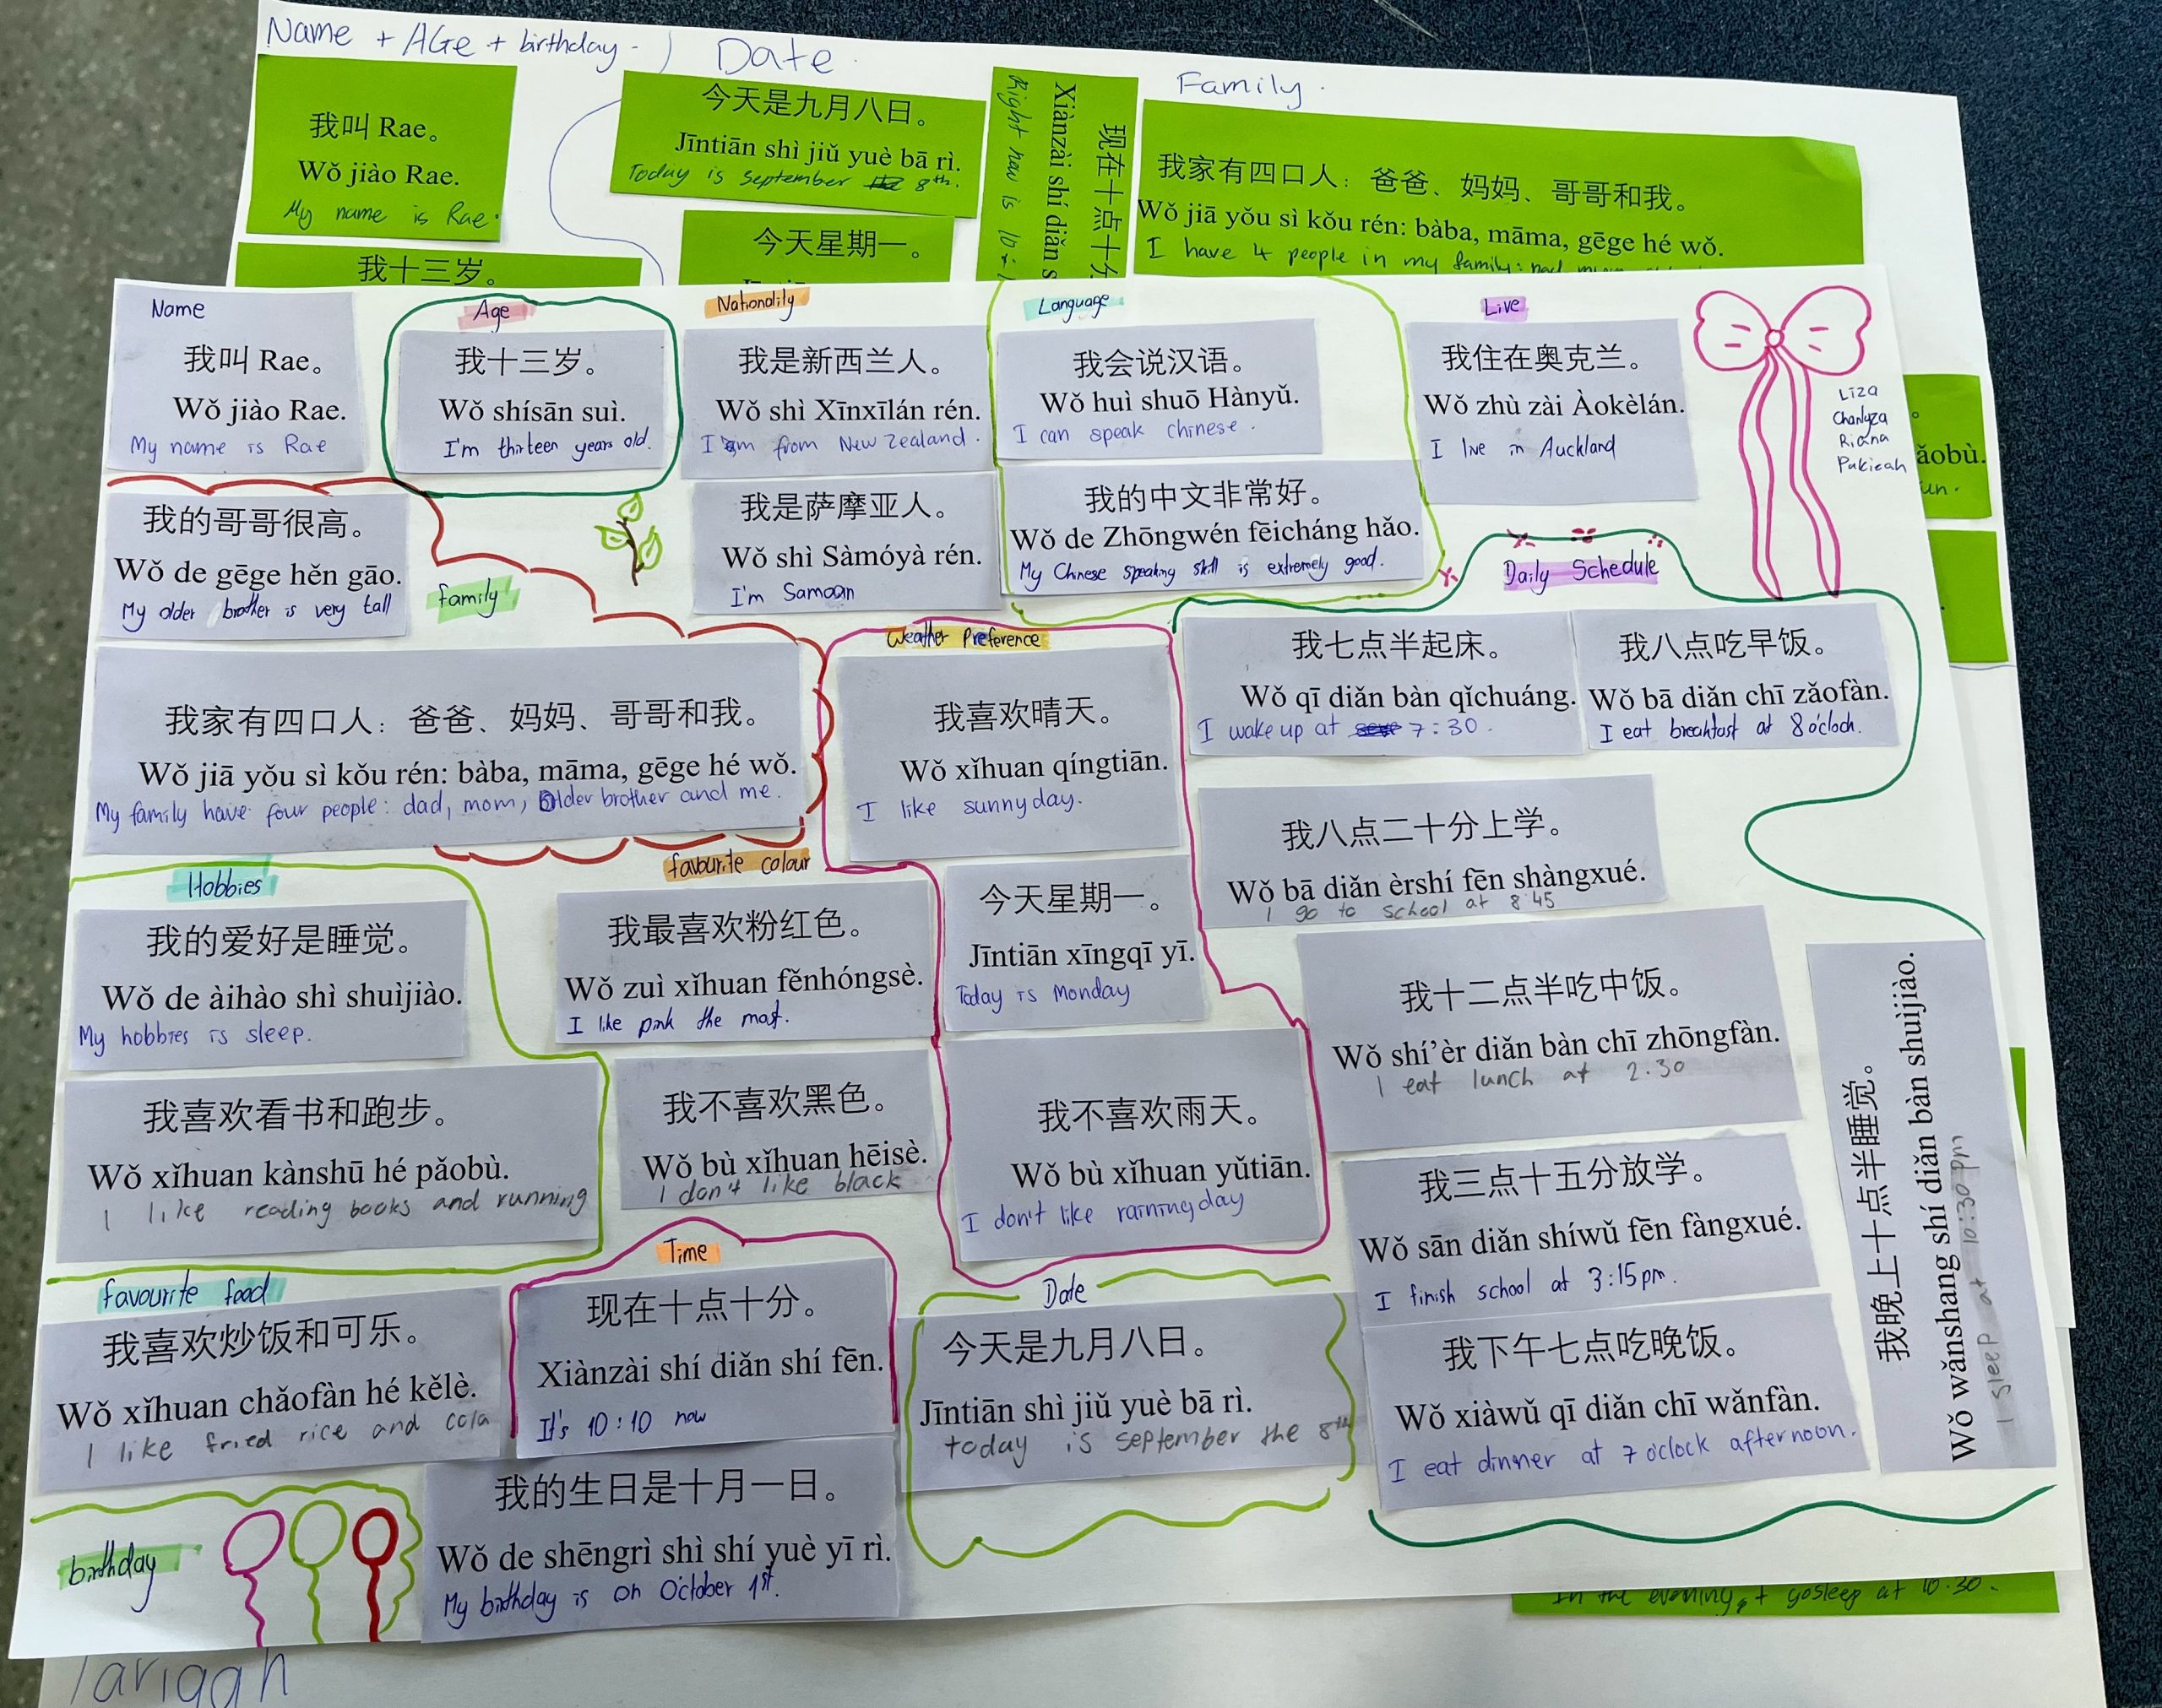 Name + AGe + birthday -
Date
Family.
我叫 Rae。
Wǒ jiào Rae.
My name is Rae.
我十三岁。
今天是九月八日。
Jīntiān shì jiǔ yuè bā rì.
Today is september 8th.
今天星期一。
现在十点十分
Xiànzài shí diǎn s
Right now is 10:1
我家有四口人：爸爸、妈妈、哥哥和我。
Wǒ jiā yǒu sì kǒu rén: bàba, māma, gēge hé wǒ.
I have 4 people in my family:
Name
我叫 Rae。
Wǒ jiào Rae.
My name is Rae
Age
我十三岁。
Wǒ shísān suì.
I'm thirteen years old.
Nationality
我是新西兰人。
Wǒ shì Xīnxīlán rén.
I am from New Zealand.
我是萨摩亚人。
Wǒ shì Sàmóyà rén.
I'm Samoan
Language
我会说汉语。
Wǒ huì shuō Hànyǔ.
I can speak chinese.
我的中文非常好。
Wǒ de Zhōngwén fēicháng hǎo.
My Chinese speaking skill is extremely good.
Live
我住在奥克兰。
Wǒ zhù zài Àokèlán.
I live in Auckland
Liza
Riana
Pukieah
ǎobù.
un.
family
我的哥哥很高。
Wǒ de gēge hěn gāo.
My older brother is very tall
我家有四口人：爸爸、妈妈、哥哥和我。
Wǒ jiā yǒu sì kǒu rén: bàba, māma, gēge hé wǒ.
My family have four people: dad, mom, older brother and me.
Weather Preference
我喜欢晴天。
Wǒ xǐhuan qíngtiān.
I like sunny day.
今天星期一。
Jīntiān xīngqī yī.
Today is Monday
我不喜欢雨天。
Wǒ bù xǐhuan yǔtiān.
I don't like rainingday
Daily Schedule
我七点半起床。
Wǒ qī diǎn bàn qǐchuáng.
I wake up at 7:30.
我八点吃早饭。
Wǒ bā diǎn chī zǎofàn.
I eat breakfast at 8 o'cloch.
我八点二十分上学。
Wǒ bā diǎn èrshí fēn shàngxué.
I go to school at 8 45
我十二点半吃中饭。
Wǒ shí'èr diǎn bàn chī zhōngfàn.
I eat lunch at 2.30
我三点十五分放学。
Wǒ sān diǎn shíwǔ fēn fàngxué.
I finish school at 3:15pm.
我下午七点吃晚饭。
Wǒ xiàwǔ qī diǎn chī wǎnfàn.
I eat dinner at 7 o'clock afternoon.
我晚上十点半睡觉。
Wǒ wǎnshang shí diǎn bàn shuìjiào.
I sleep at 10:30 pm
Hobbies
我的爱好是睡觉。
Wǒ de àihào shì shuìjiào.
My hobbies is sleep.
我喜欢看书和跑步。
Wǒ xǐhuan kànshū hé pǎobù.
I like reading books and running
favourite colour
我最喜欢粉红色。
Wǒ zuì xǐhuan fěnhóngsè.
I like pink the most.
我不喜欢黑色。
Wǒ bù xǐhuan hēisè.
I don't like black
favourite food
我喜欢炒饭和可乐。
Wǒ xǐhuan chǎofàn hé kělè.
I like fried rice and cola
Time
现在十点十分。
Xiànzài shí diǎn shí fēn.
It's 10:10 now
Date
今天是九月八日。
Jīntiān shì jiǔ yuè bā rì.
today is september the 8th
birthday
我的生日是十月一日。
Wǒ de shēngrì shì shí yuè yī rì.
My birthday is on October 1st.
In the evening, I gosleep at 10.30.